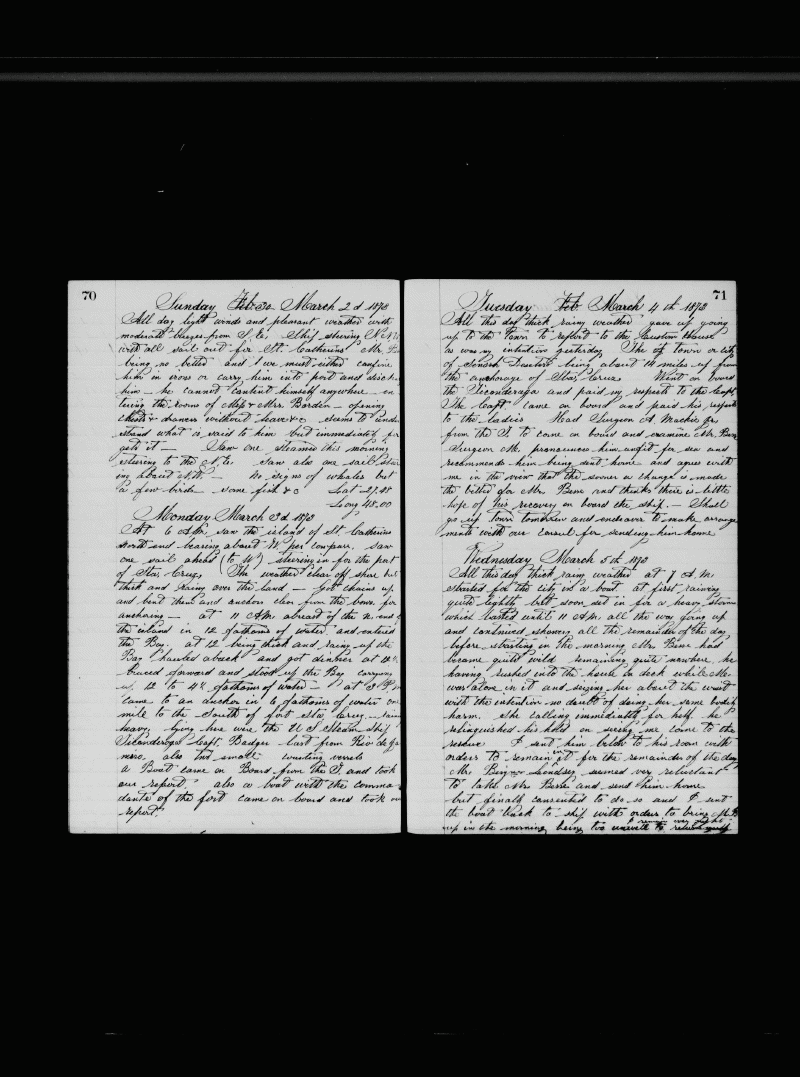 70
Sunday Feb 30 March 2d 1873
All day light winds and pleasant weather with
moderate breezes from S. E. Ship steering N.
with all sail out for St. Catherins Mr.
being no better and we must either confine
him in irons or carry him into port and
him - he cannot content himself anywhere - en
tering the rooms of Miss & Mrs. Borden - opening
chests & drawers without leave &c seems to under
stand what is said to him but immediately for
gets it - Saw one steamer this morning
steering to the N.E. Saw also one sail steer
ing about N.W. - No signs of whales but
a few birds some fish &c Lat 29.48
Long 48.00
Monday March 3d 1873
At 6 AM. saw the island of St Catherins
North end bearing about W. per compass. Saw
one sail ahead (to W) steering in for the port
of Sta Cruz. The weather clear off shore but
thick and rainy over the land - Got chains up
and bent them and anchors clear from the bows for
anchoring - at 11 AM abreast of the N. end of
the island in 12 fathoms of water and entered
the Bay. at 12 being thick and rainy up the
Bay hauled aback and got dinner at
braced forward and stood up the Bay carrying
up 12 to 4 fathoms of water - at 3 P.M
came to an anchor in 6 fathoms of water one
mile to the South of fort Sta Cruz -
heavy lying here were the U S Steam Ship
Ticonderoga Capt. Badger last from Rio de Ja
niro, also two small coasting vessels
a Boat came on Board from the T. and took
our report, also a boat with the comman
dante of the fort came on board and took our
report.
71
Tuesday Feb March 4th 1873
All this day thick rainy weather gave up going
up to the Town to report to the Custom House
as was my intention yesterday The town or city
of being about 14 miles up from
the anchorage of Sta Cruz Went on board
the Ticonderoga and paid my respects to the Capt.
The Capt. came on board and paid his respects
to the ladies Had Surgeon A. Mackie
from the T. to come on board and examine Mr.
Surgeon M. pronounces him unfit for sea and
recommends him being sent home and agrees with
me in the view that the sooner a change is made
the better for Mr. and thinks there is little
hope of his recovery on board the ship. - Shall
go up town tomorrow and endeavor to make arrange
ments with our Consul for sending him home
Wednesday March 5th 1873
All this day thick rainy weather at 7 A.M.
started for the city in a boat at first raining
quite lightly but soon set in for a heavy storm
which lasted until 11 AM all the way going up
and continued showery all the remainder of the day
before starting in the morning Mr. had
became quite wild remaining quite nowhere, he
having rushed into the house on deck while
was alone in it and seizing her about the waist
with the intention no doubt of doing her some bodily
harm. She calling immediately for help he
relinquished his hold on seeing me come to the
rescue I sent him below to his room with
orders to remain in it for the remainder of the day
Mr. Lindsey seemed very reluctant
to take Mr. and send him home
but finally consented to do so and I sent
the boat back to ship with orders to bring Mr.
up in the morning being too unwell to return myself